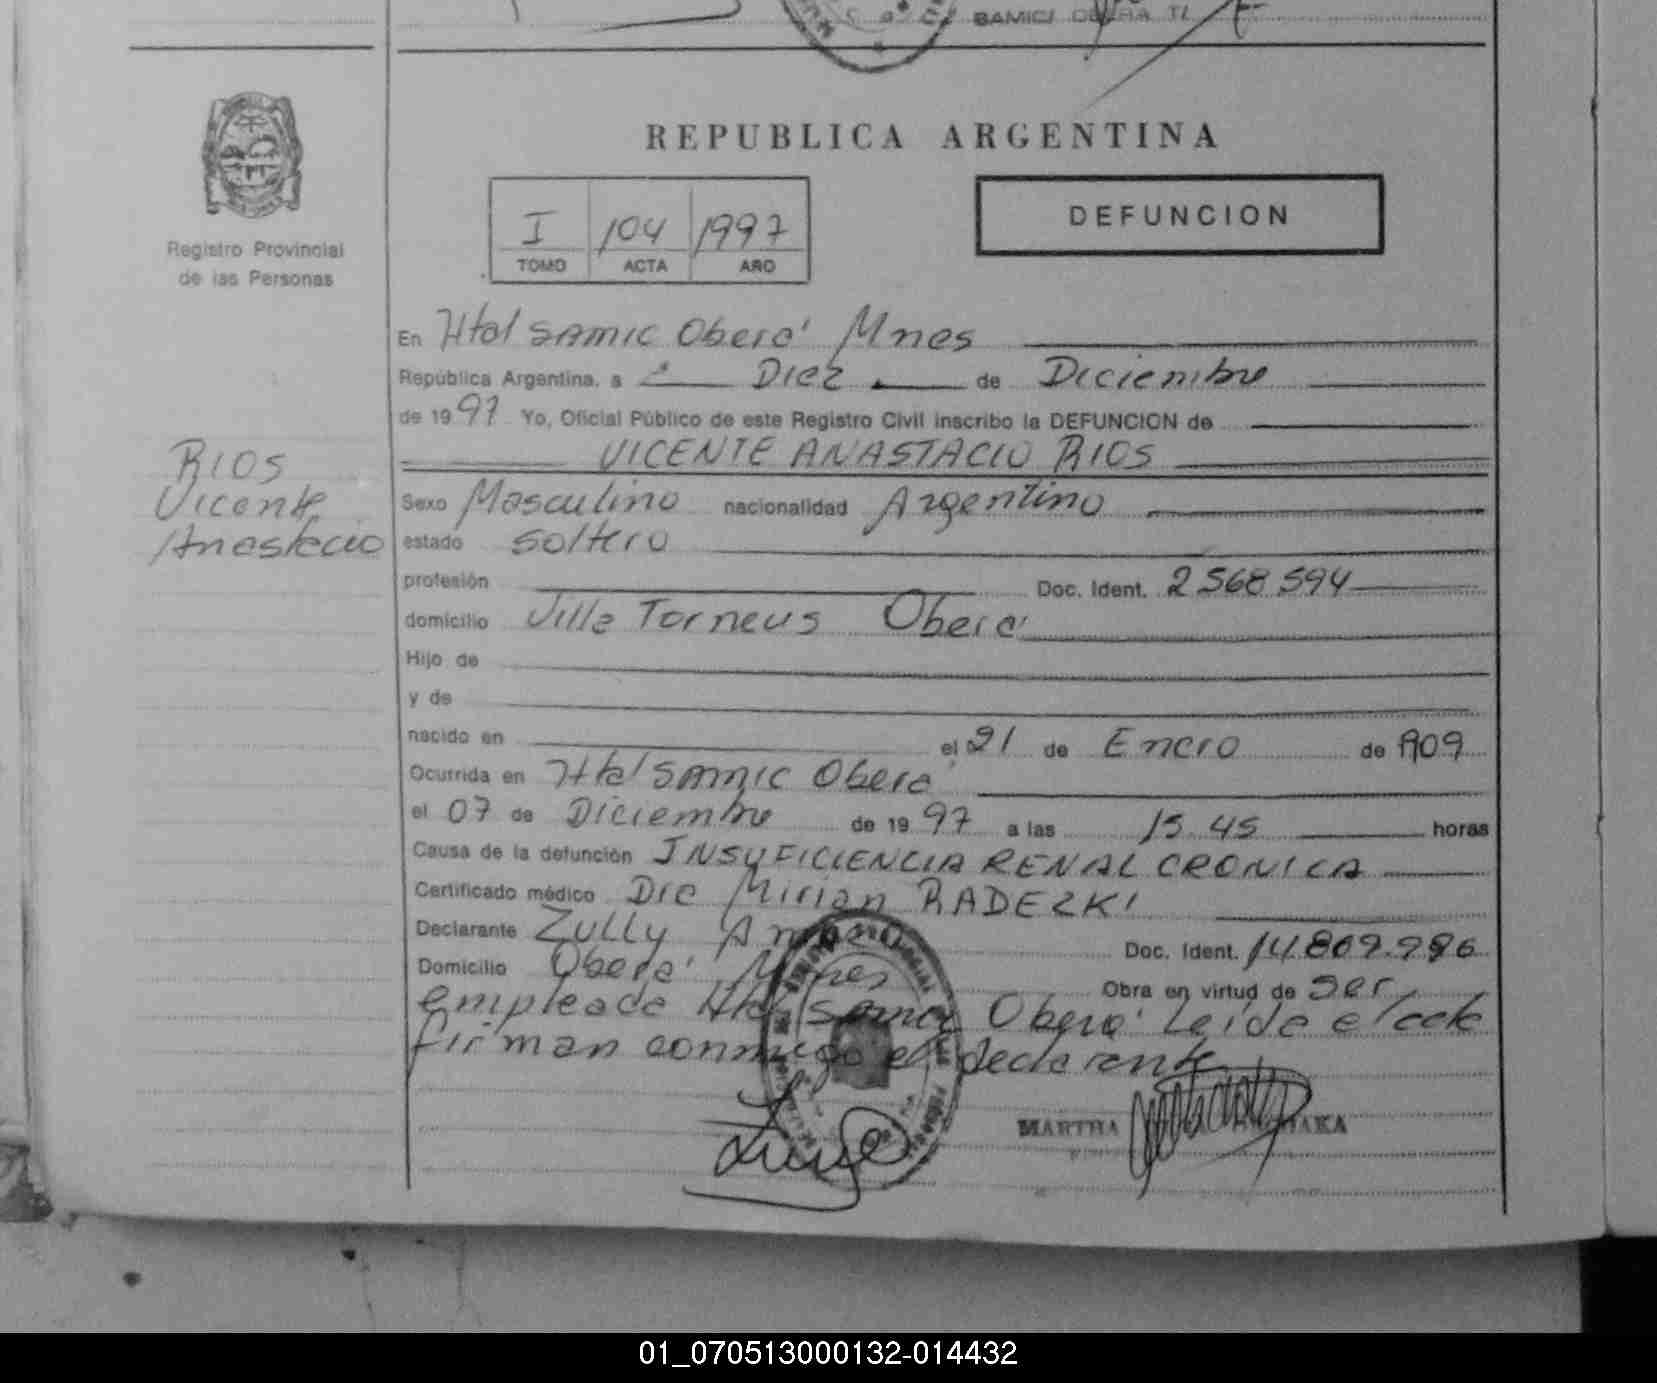 REPUBLICA ARGENTINA
I 104 1997
TOMO ACTA AÑO
DEFUNCION
Registro Provincial
de las Personas
RIOS
Vicente
Anastacio
En Htal SAMIC Oberá Mnes
República Argentina, a Diez de Diciembre
de 1997 Yo, Oficial Público de este Registro Civil inscribo la DEFUNCION de
VICENTE ANASTACIO RIOS
Sexo Masculino nacionalidad Argentino
estado soltero
profesión Doc. Ident. 2568594
domicilio Villa Torneus Oberá
Hijo de
y de
nacido en el 21 de Enero de 1909
Ocurrida en Htal SAMIC Oberá
el 07 de Diciembre de 1997 a las 15 45 horas
Causa de la defunción INSUFICIENCIA RENAL CRONICA
Certificado médico Dra Mirian RADEZKI
Declarante Zully Doc. Ident. 14.809.996
Domicilio Oberá Mnes Obra en virtud de ser
empleada Htal Samic Oberá Leída el acta
firman conmigo el declarante
MARTHA
01_070513000132-014432